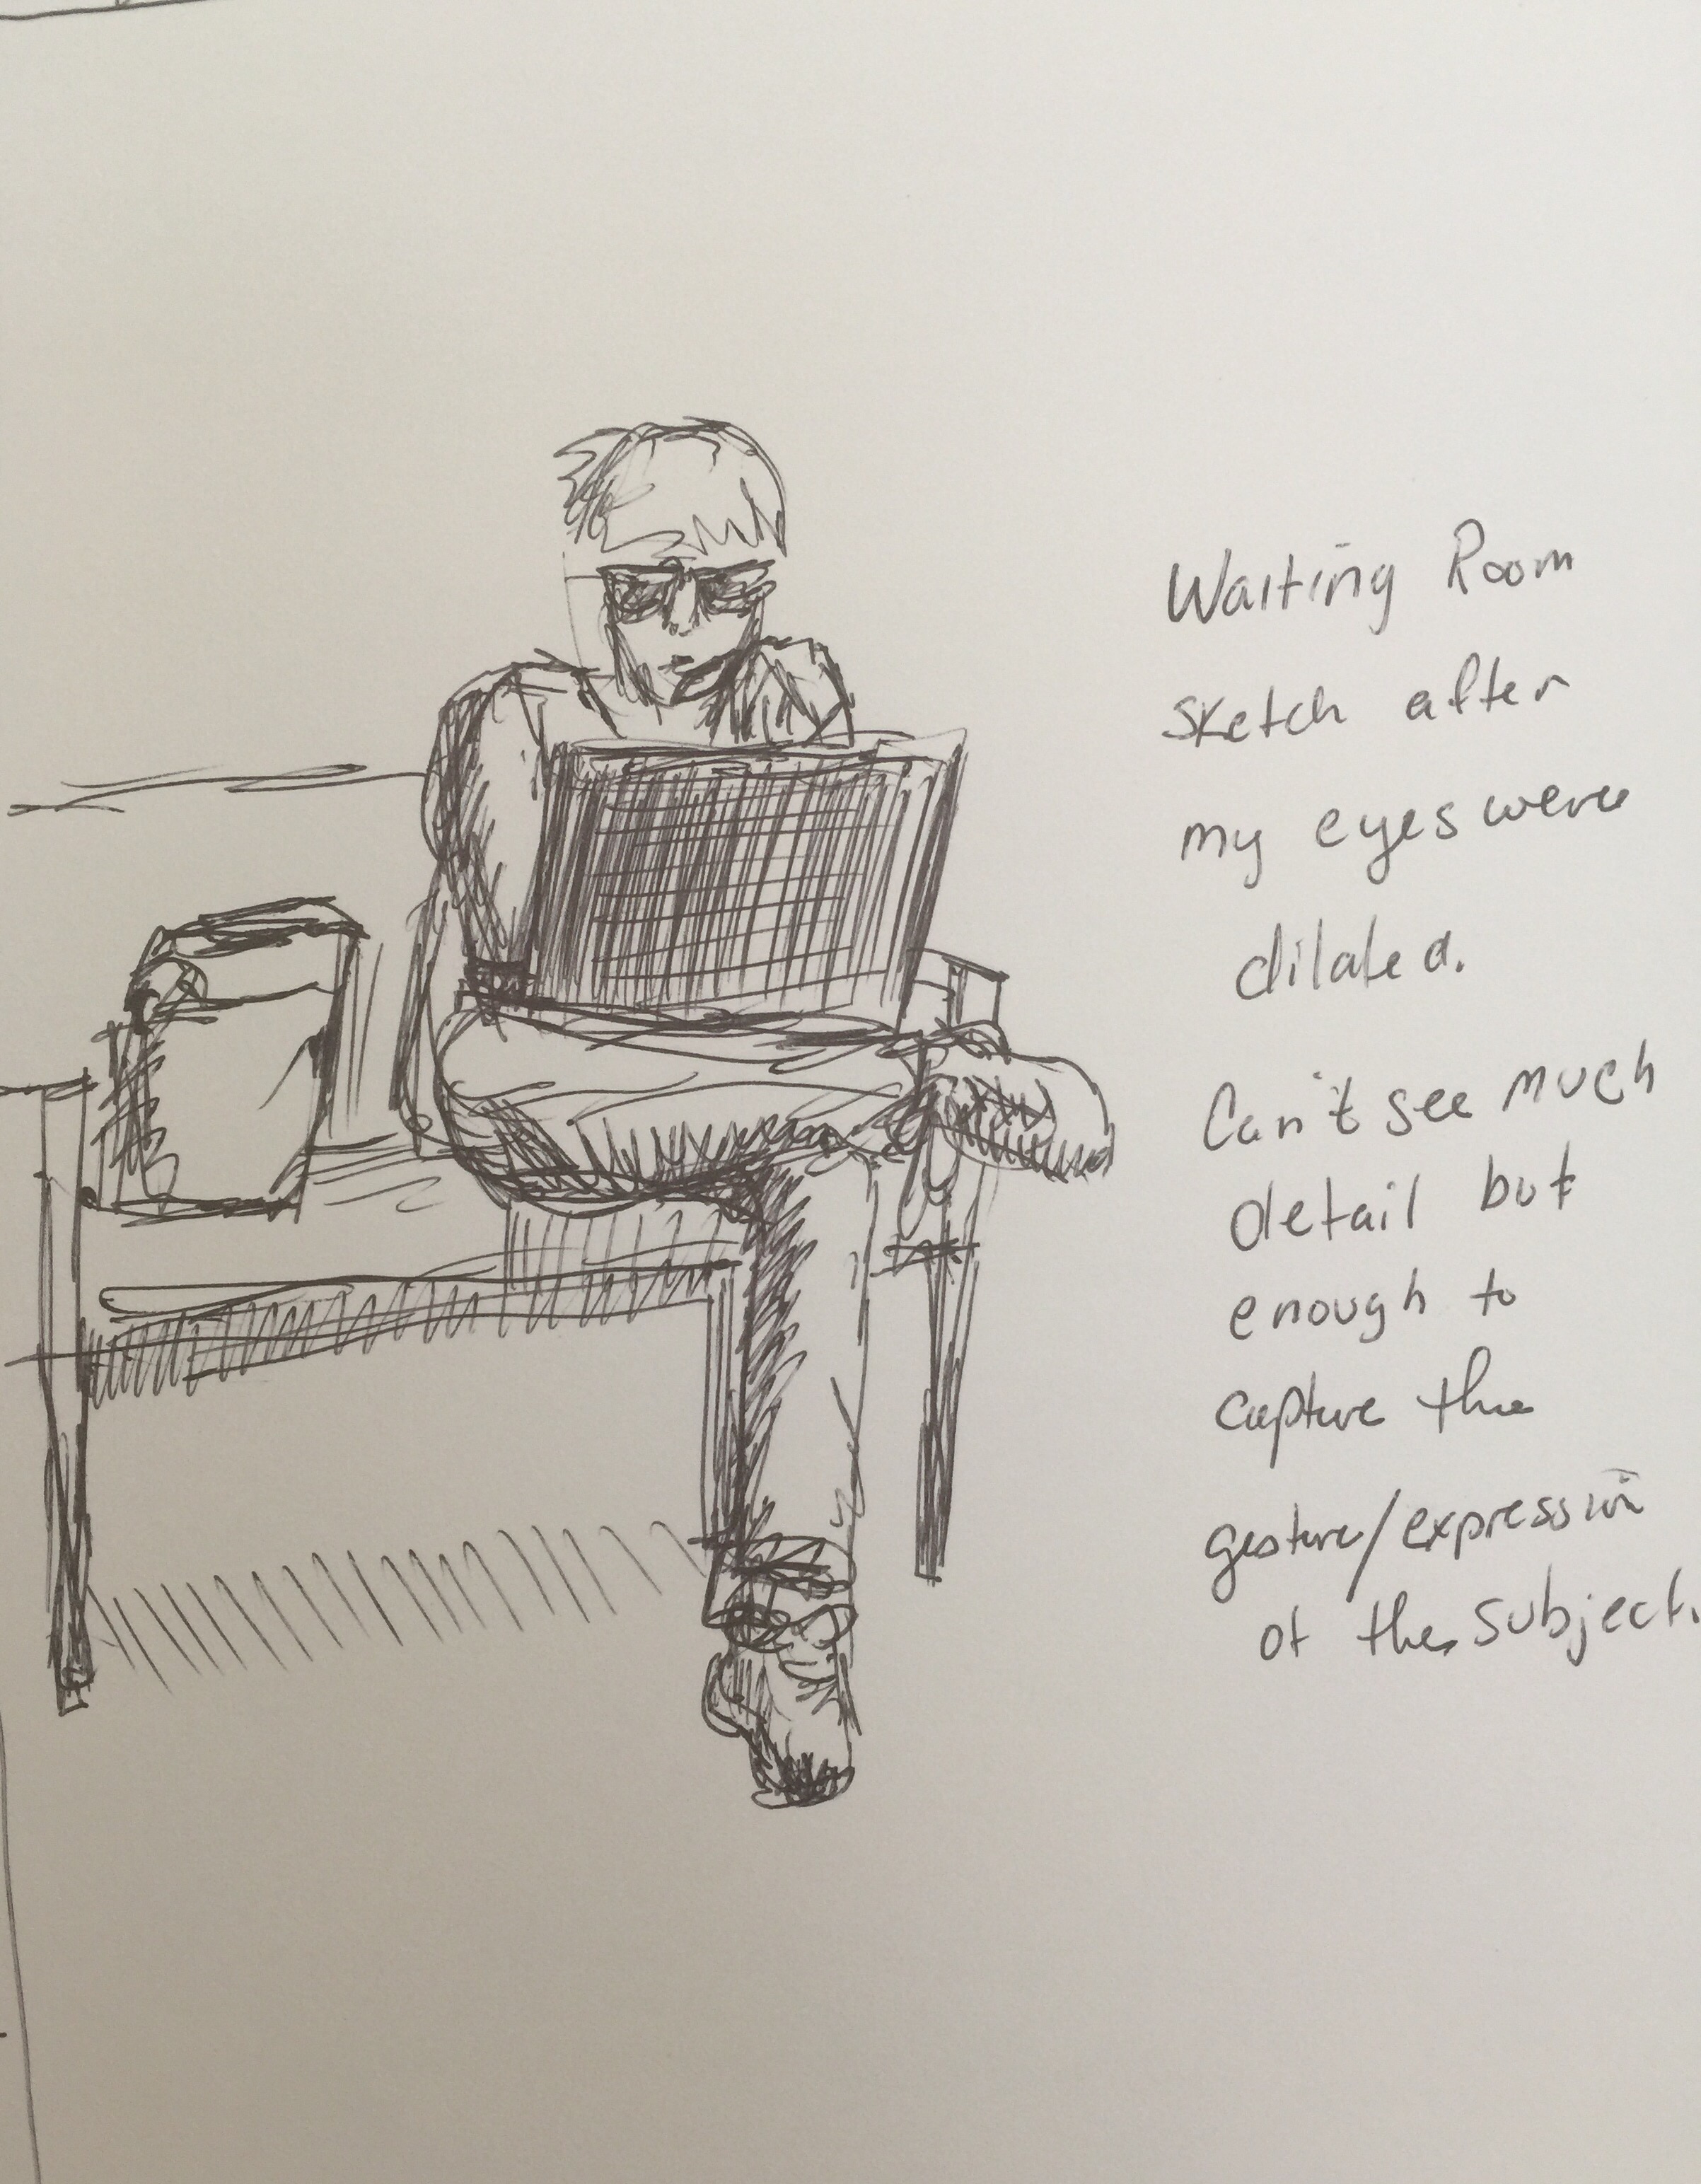 Waiting Room
sketch after
my eyes were
dilated.
Can't see much
detail but
enough to
capture the
gesture/expression
of the subject.